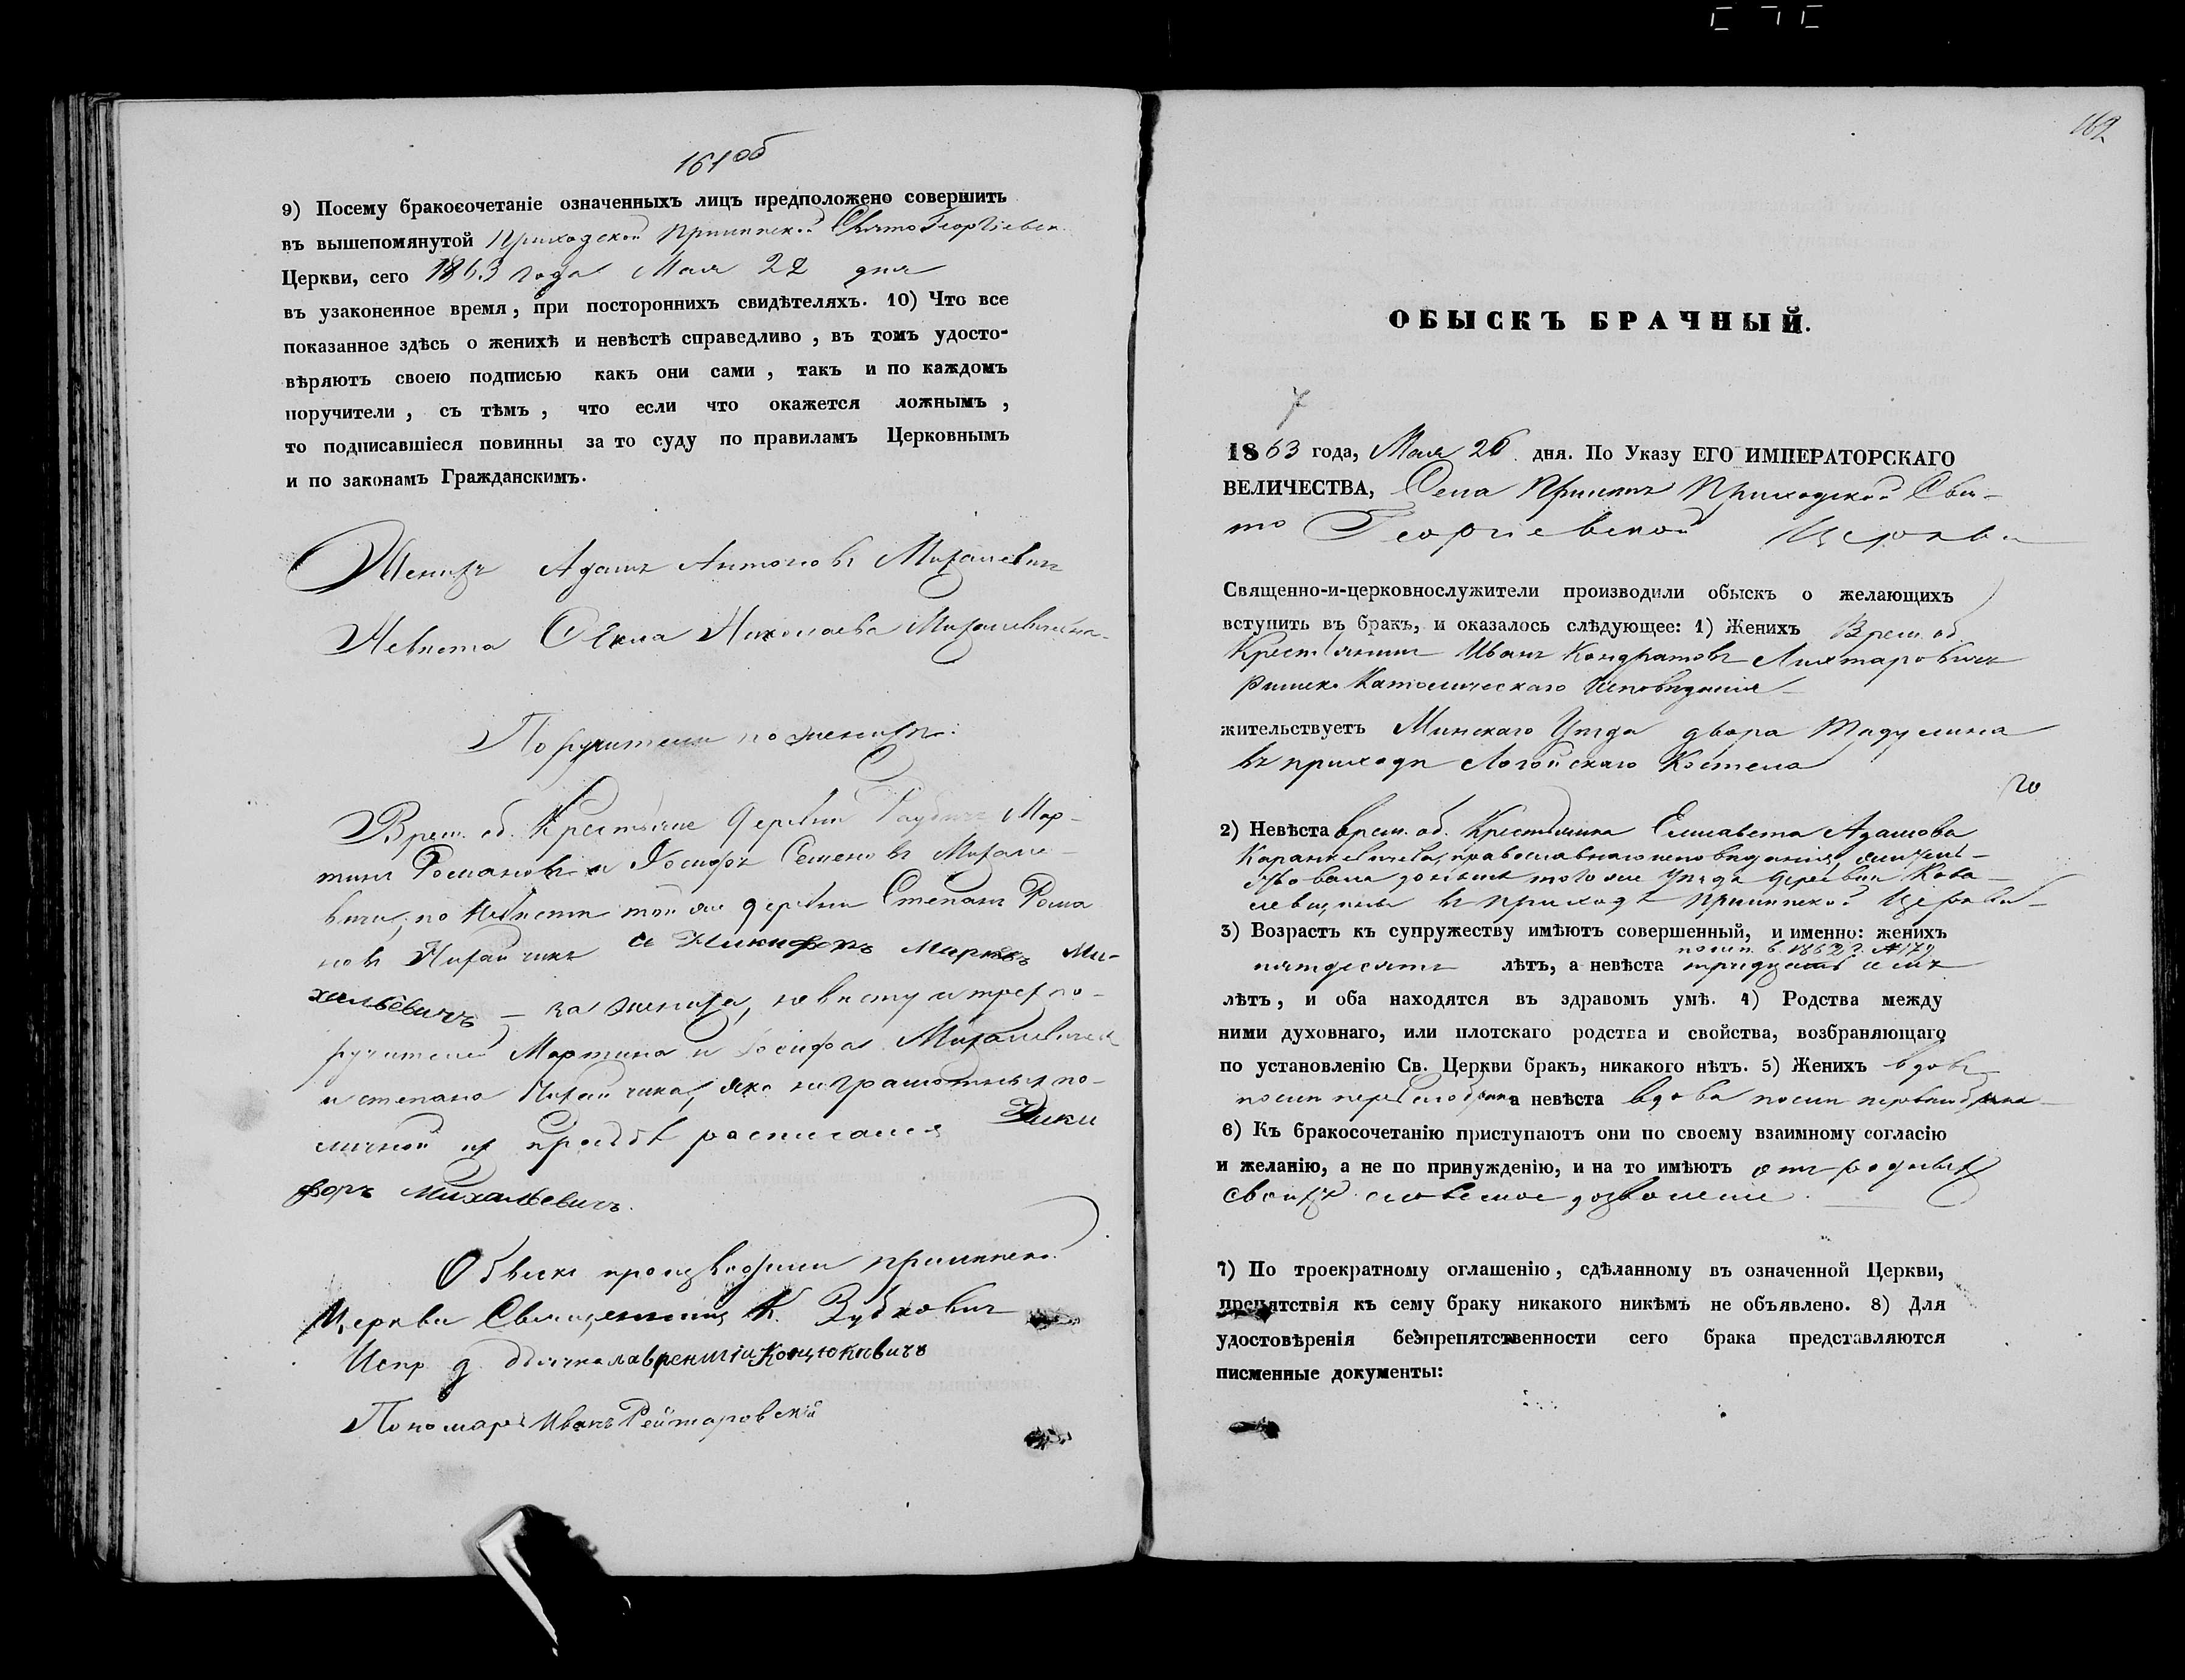 161об
9) Посему бракосочетаніе означенныхъ лицъ предположено совершить
въ вышепомянутой Приходской Прилепской Свято Георгіевск.
Церкви, сего 1863 года Мая 22 дня
въ узаконенное время, при постороннихъ свидѣтеляхъ. 10) Что все
показанное здѣсь о женихѣ и невѣстѣ справедливо, въ томъ удосто-
вѣряютъ своею подписью какъ они сами, такъ и по каждомъ
поручители, съ тѣмъ, что если что окажется ложнымъ,
то подписавшіеся повинны за то суду по правиламъ Церковнымъ
и по законамъ Гражданскимъ.
Женихъ Адамъ Антоновъ Михалевичъ
Невѣста Николаева Михалевичева
Поручители по женихѣ:
Врем. об. Крестьяне деревни Мар-
тинъ Романовъ и Іосифъ Семеновъ Михале-
вичи, по Невѣстѣ той же деревни Степанъ Рома
новъ и Никифоръ Марковъ Ми-
хальевичъ – за жениха, невѣсту и трех по-
ручителей Мартина и Іосифа Михалевичей
и степана яко неграмотныхъ по
личной их просьбѣ расписался Ники
форъ Михальевичъ.
Обыскъ производили прилепской
Церкви Священникъ К. Зубковичъ
Испр. д. дьячка лаврентій Концюкевичъ
Пономарь Иванъ Рейтаровскій
162
ОБЫСКЪ БРАЧНЫЙ.
1863 года, Мая 26 дня. По Указу ЕГО ИМПЕРАТОРСКАГО
ВЕЛИЧЕСТВА, Села Прилепъ Приходской Свя-
то Георгіевской Церкви
Священно-и-церковнослужители производили обыскъ о желающихъ
вступить въ бракъ, и оказалось слѣдующее: 1) Женихъ Врем. об.
Крестьянинъ Иванъ Кондратовъ Лихтаровичъ
Римско Католическаго Исповѣданія
жительствуетъ Минскаго Уѣзда двора
въ приходѣ Логойскаго Костела
2) Невѣста врем. об. Крестьянка Елисавета Адамова
православнаго исповѣданія, жительс-
твовала донынѣ того же Уѣзда деревни Кова
левщины въ приходѣ Прилепской Церкви
3) Возрастъ къ супружеству имѣютъ совершенный, и именно: женихъ
пятдесятъ лѣтъ, а невѣста тридцать семь
лѣтъ, и оба находятся въ здравомъ умѣ. 4) Родства между
ними духовнаго, или плотскаго родства и свойства, возбраняющаго
по установленію Св. Церкви бракъ, никакого нѣтъ. 5) Женихъ вдовъ
послѣ перваго брака а невѣста вдова послѣ перваго брака
6) Къ бракосочетанію приступаютъ они по своему взаимному согласію
и желанію, а не по принужденію, и на то имѣютъ отъ родныхъ
своихъ словесное дозволеніе.
7) По троекратному оглашенію, сдѣланному въ означенной Церкви,
препятствія къ сему браку никакого никѣмъ не объявлено. 8) Для
удостовѣренія безпрепятственности сего брака представляются
писменные документы: